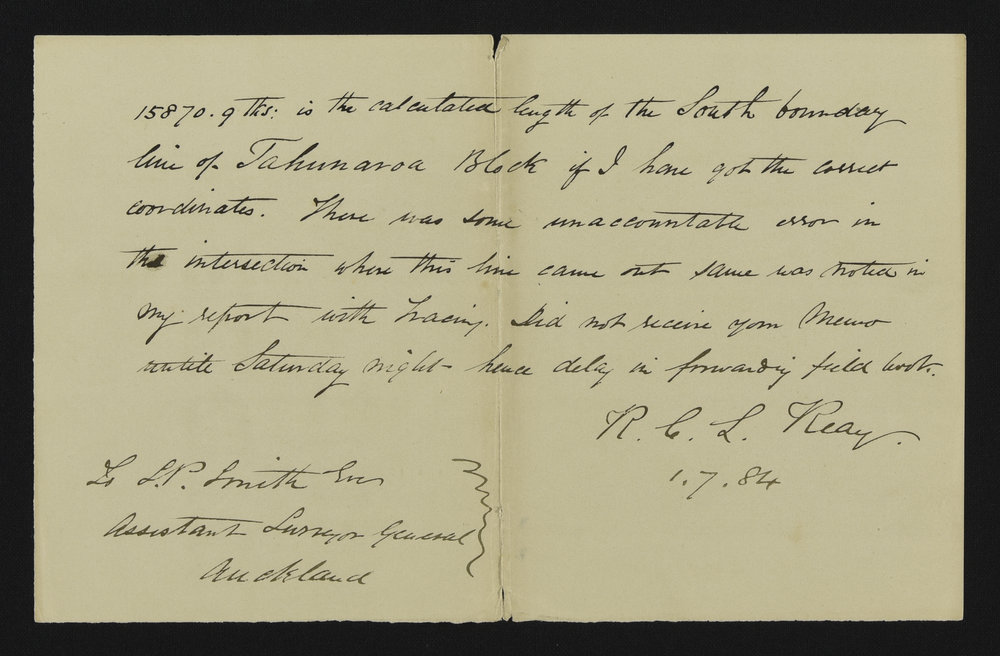 15870.9 lks: is the calculated length of the South bounday
line of Tahunaroa Block if I have got the correct
coordinates. There was some unaccountable error in
the intersection where this line came out same was noted in
my report with tracing. Did not receive your Memo
untile Saturday night hence delay in forwarding field book.
R. C. L. Reay.
1.7.84
To S.P. Smith Esq
Assistant Surveyor General
Auckland